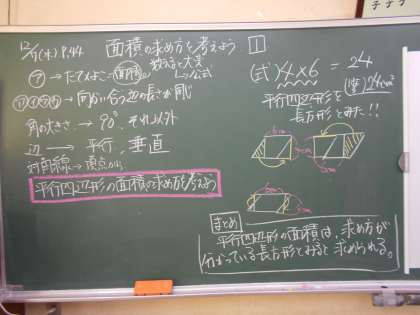 12/7(水) P.44 面積の求め方を考えよう
㋐→たて×よこ=面積
→公式
→向かい合う辺の長さが同じ
角の大きさ→90°、それ以外
辺→平行、垂直
対角線→頂点から
平行四辺形の面積の求め方を考えよう
1
(式)4×6=24
(答)24cm²
平行四辺形を
長方形とみた!!
まとめ
平行四辺形の面積は、求め方が
分かっている長方形とみると求められる。